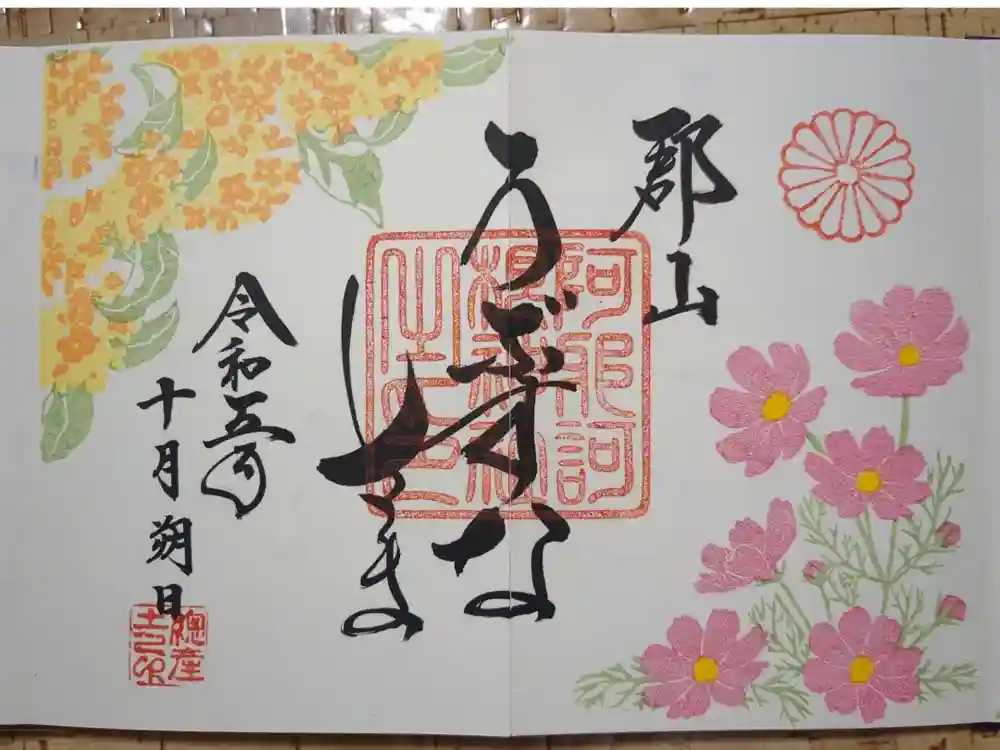 郡山
うぶすな
さま
阿邪訶
根神社
之印
令和五年
十月朔日
總産